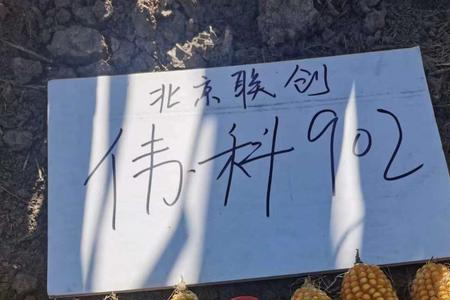 北京联创
伟科902